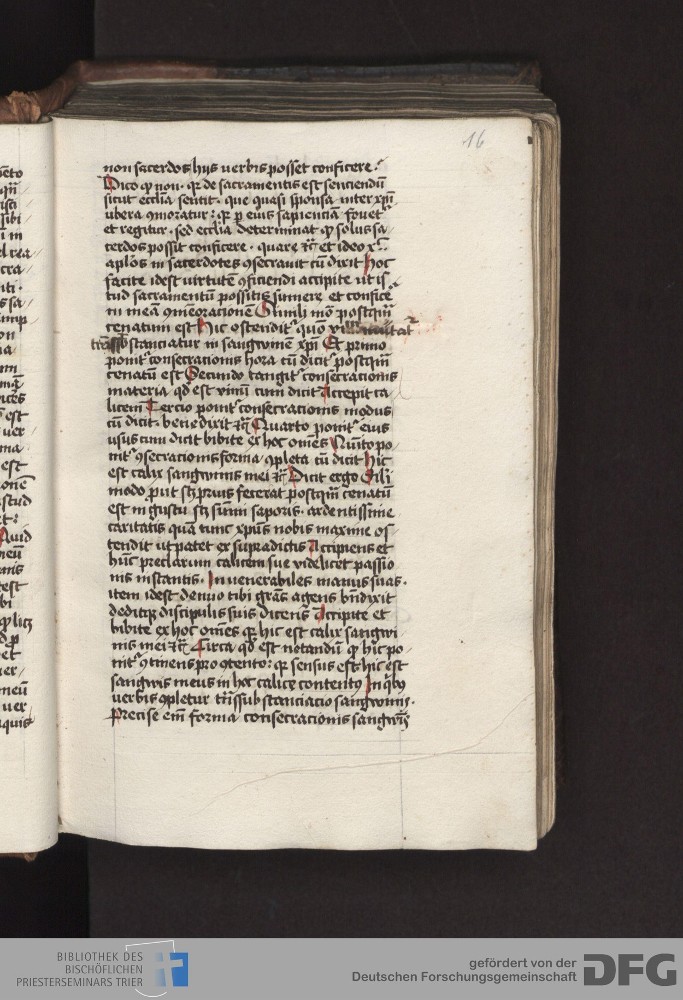 16
non sacerdos hijs uerbis posset conficere.
Dico qp non. qr de sacramentis est senciendū
sicut ecclīa sentit. que quasi sponsa inter xpī
ubera ꝯmoratur: qr p eius sapienciam fouet᷑
et regitur. sed ecclīa determinat qp solus sa
cerdos possit conficere. quare et ideo
aplos in sacerdotes ꝯsecrauit cū dixit Hoc
facite idest uirtutē ꝯficiendi accipite ut is
tud sacramentū possitis sumere et confice
in meā ꝯmēoracione Simili mō postqm̄
cenatum est Hic ostendit᷑ quō
trāssubstanciatur in sangwinē xpī Et primo
ponit᷑ consecracionis hora cū dicit᷑ postqm̄
cenatū est Secundo tangit᷑ consecracionis
materia qd est vinū cum dicit Accepit ca
licem Tercio ponit᷑ consecracionis modus
cū dicit. benedixit Quarto ponit᷑ eius
usus cum dicit bibite ex hoc om̄es Quīto po
nit᷑ ꝯsecracionis forma ꝯpleta cū dicit Hic
est calix sangwinis mei Dicit ergo Sili
modo put prius fecerat postqm̄ cenatū
est in gustu sūmi saporis. ardentissime
caritatis quā tunc xpūs nobis maxime os
tendit ut patet ex supradictis Accipiens et
hūc preclarum calicem sue videlicet passio
nis instantis. In uenerabiles manus suas.
item idest denuo tibi grās agens bn̄dixit
deditqz discipulis suis dicens Accipite et
bibite ex hoc om̄es qr hic est calix sangwi
nis mei Circa qd est notandū qp hic po
nit᷑ ꝯtinens pro ꝯtento: qr sensus est hic est
sangwis meus in hoc calice contentus In
uerbis ꝯpletur trāssubstanciacio sangwinis.
Precise em̄ forma consecracionis sangwīs
BIBLIOTHEK DES
BISCHÖFLICHEN
PRIESTERSEMINARS TRIER
gefördert von der
Deutschen Forschungsgemeinschaft
DFG